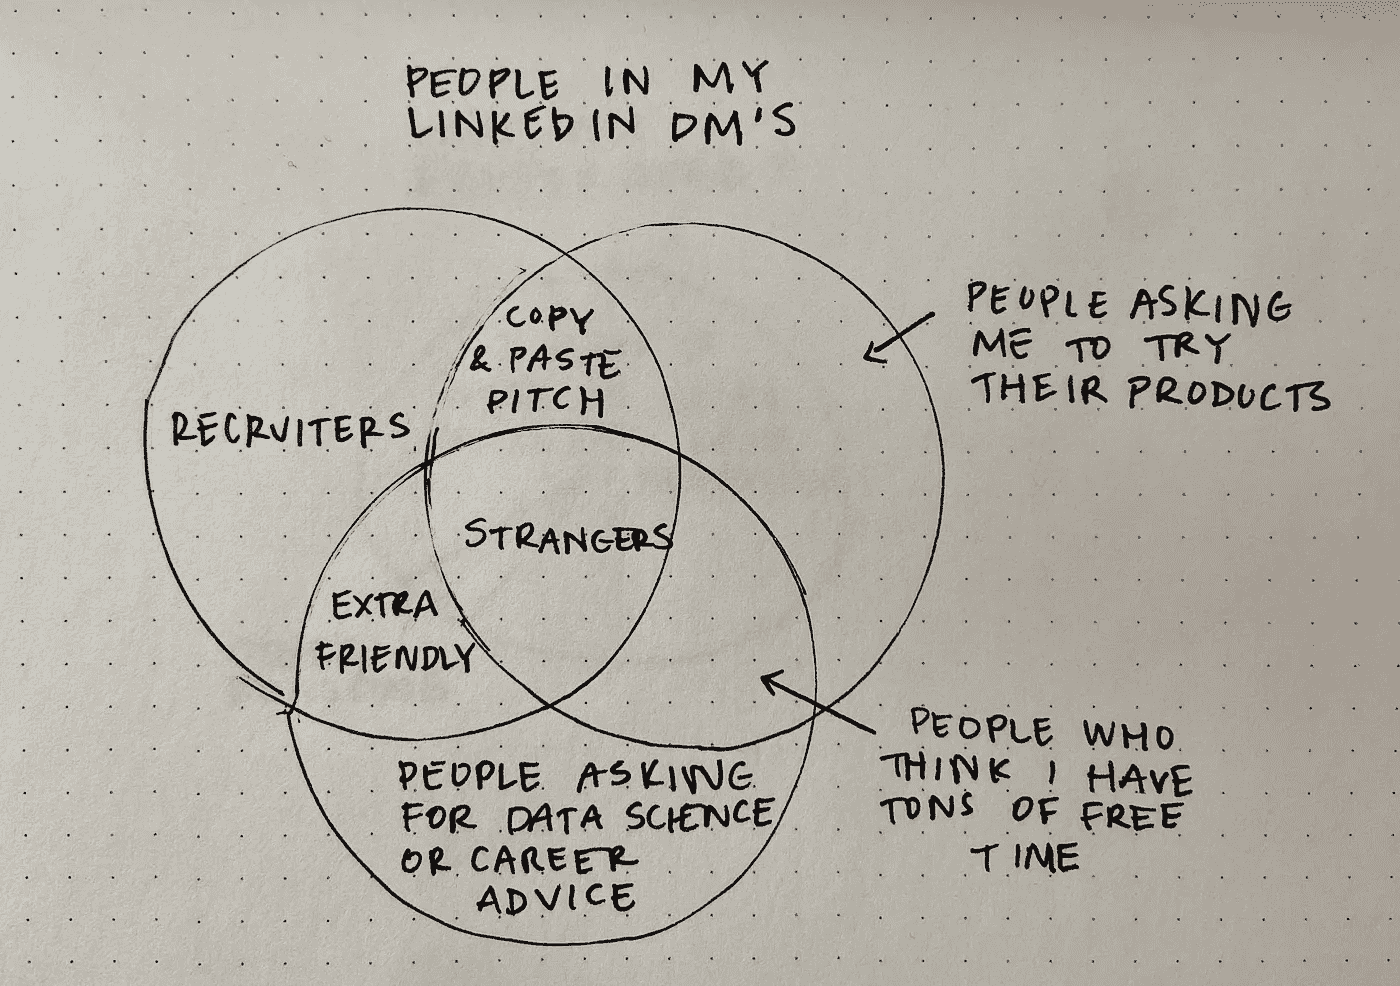 PEOPLE IN MY
LINKEDIN DM'S
COPY
& PASTE
PITCH
PEOPLE ASKING
ME TO TRY
THEIR PRODUCTS
RECRUITERS
STRANGERS
EXTRA
FRIENDLY
PEOPLE WHO
THINK I HAVE
TONS OF FREE
TIME
PEOPLE ASKING
FOR DATA SCIENCE
OR CAREER
ADVICE